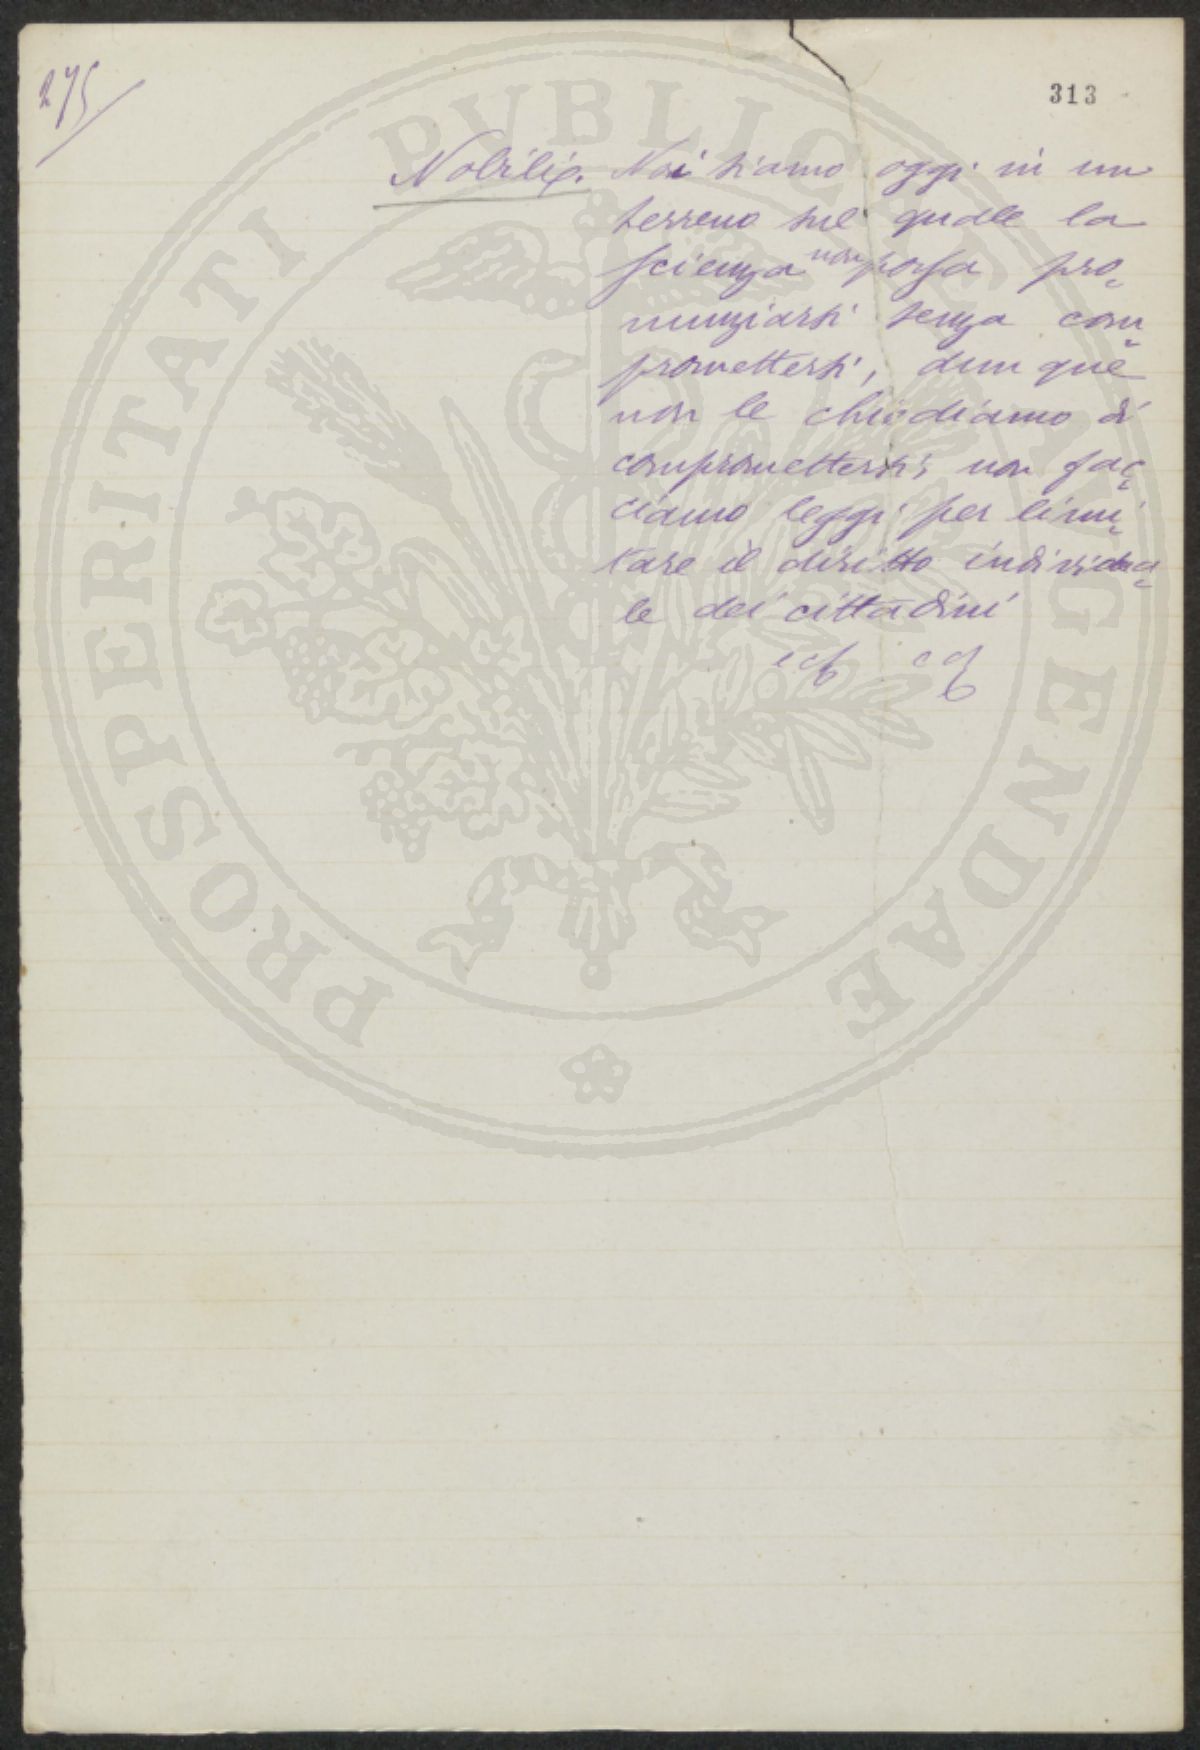 275
313
Nobili. Noi siamo oggi in un
terreno sul quale la
scienza non possa pro-
nunziarsi senza com-
promettersi, dunque
non le chiediamo di
compromettersi; non fac-
ciamo leggi per limi-
tare il diritto individua-
le dei cittadini
PROSPERITATI PVBLICAE AVGENDAE